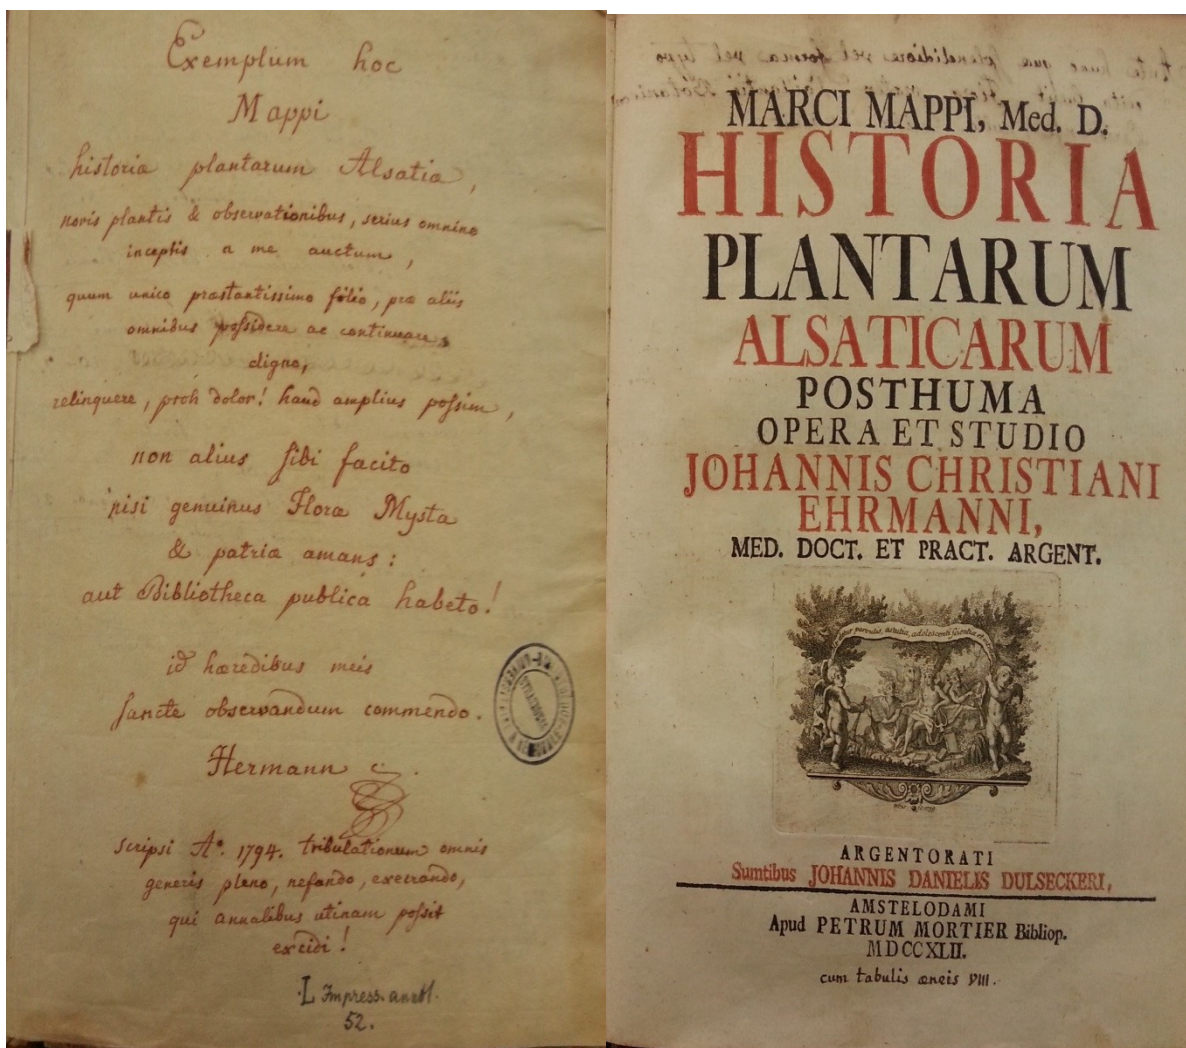 Exemplum hoc
Mappi
historiæ plantarum Alsatiæ,
novis plantis & observationibus, serius omnino
inceptis a me auctum,
quum unico præstantissimo filio, præ aliis
omnibus possidere ac continuare,
digno,
relinquere, proh dolor! haud amplius possim,
non alius sibi facito
nisi genuinus Floræ Mysta
& patriæ amans:
aut Bibliotheca publica habeto!
id hæredibus meis
sancte observandum commendo.
Hermann
scripsi Aº. 1794. tribulationum omnis
generis pleno, nefando, execrando,
qui annalibus utinam possit
excidi!
L Impress. 
52.
MARCI MAPPI, Med. D.
HISTORIA
PLANTARUM
ALSATICARUM
POSTHUMA
OPERA ET STUDIO
JOHANNIS CHRISTIANI
EHRMANNI,
MED. DOCT. ET PRACT. ARGENT.
parvulus, astutia, adolescenti scientia et
ARGENTORATI
Sumtibus JOHANNIS DANIELIS DULSECKERI,
AMSTELODAMI
Apud PETRUM MORTIER Bibliop.
MDCCXLII.
cum tabulis æneis VIII.